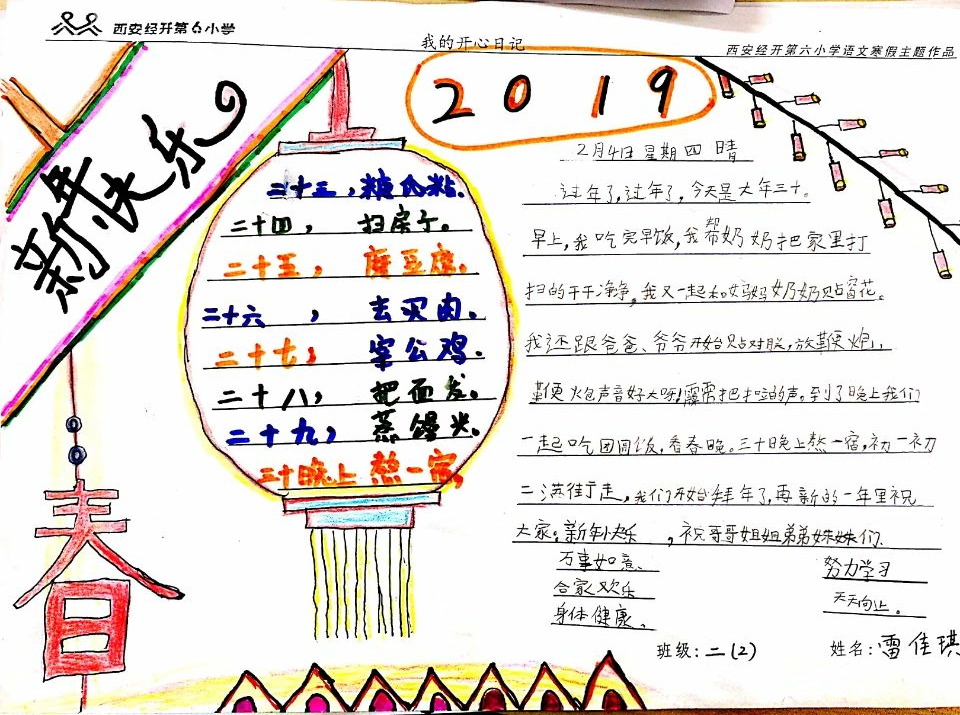 西安经开第6小学
我的开心日记
西安经开第六小学语文寒假主题作品
新年快乐
2019
二十三，糖瓜粘。
二十四，扫房子。
二十五，磨豆腐。
二十六，去买肉。
二十七，宰公鸡。
二十八，把面发。
二十九，蒸馒头。
三十晚上熬一宿，
春
2月4日星期四晴
过年了，过年了，今天是大年三十。
早上，我吃完早饭，我帮奶奶把家里打
扫的干干净净，我又一起和妈妈奶奶贴窗花。
我还跟爸爸、爷爷开始贴对联，放鞭炮，
鞭炮声音好大呀！
到了晚上我们
一起吃团圆饭，看春晚。三十晚上熬一宿，初一初
二满街走，我们开始拜年了，再新的一年里祝
大家：新年快乐，祝哥哥姐姐弟弟妹妹们、
万事如意、
合家欢乐
身体健康、
努力学习
天天向上。
班级：二(2)
姓名：雷佳琪